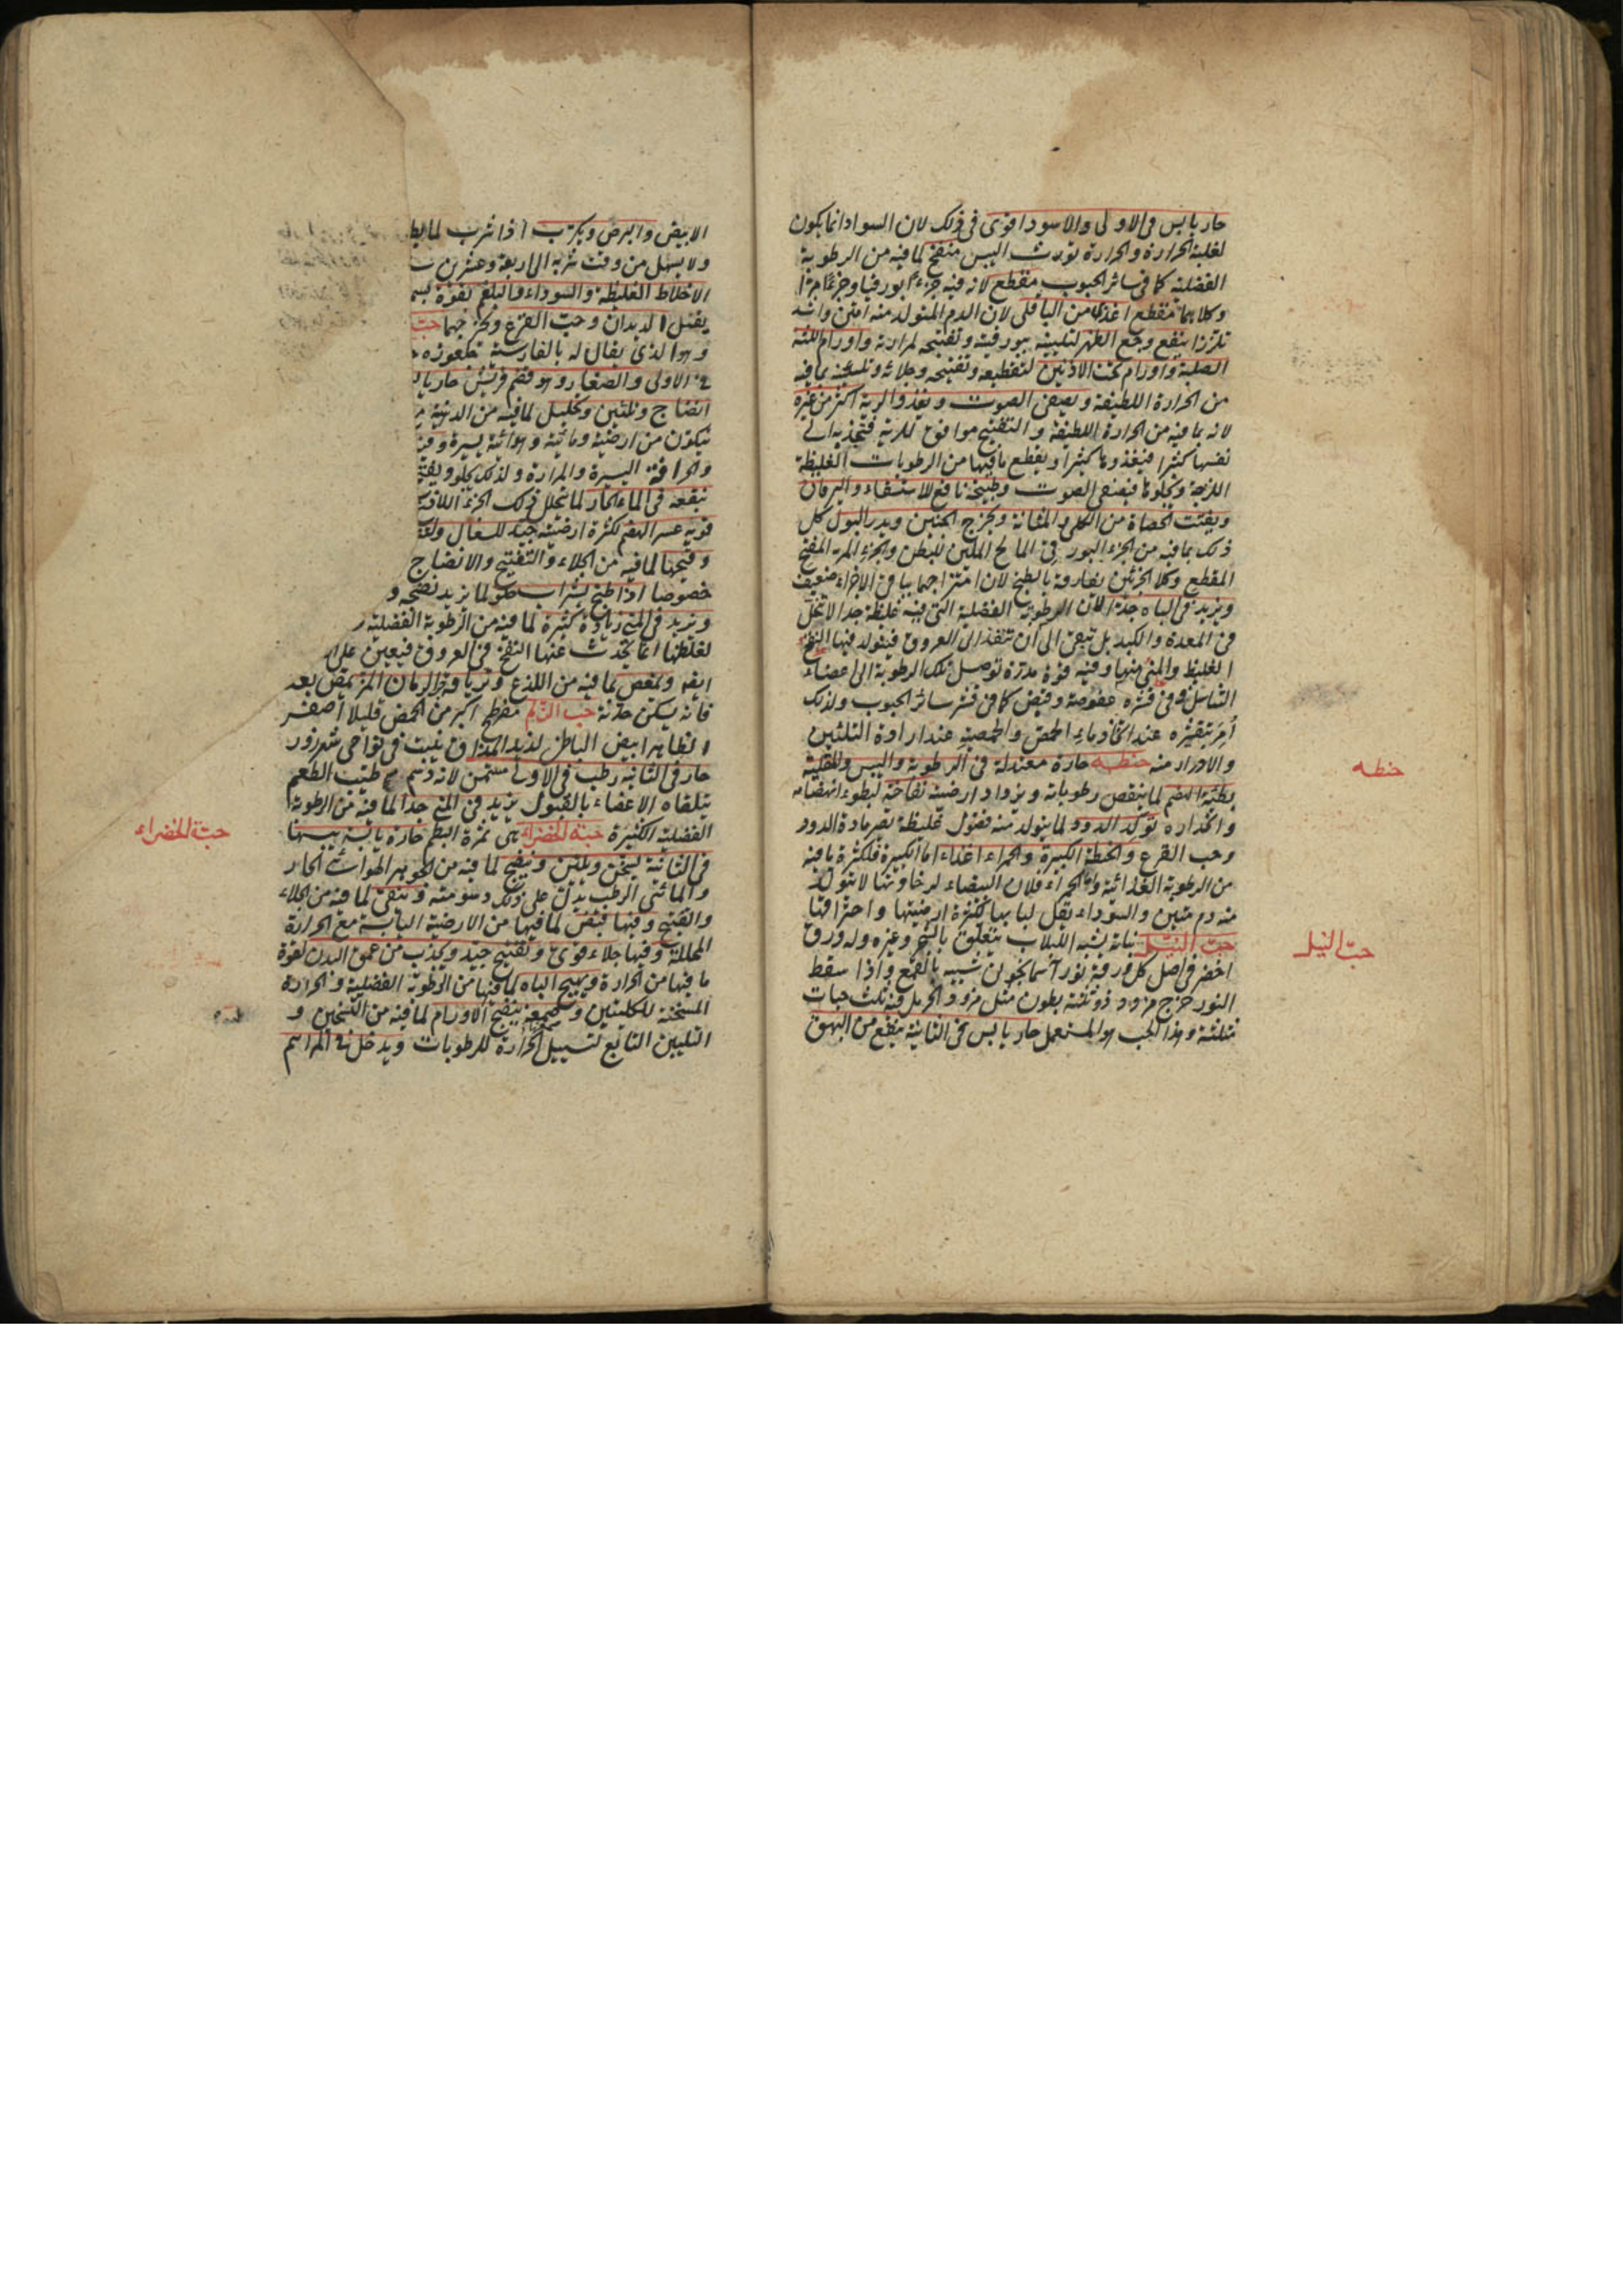 حار يابس فى الاولى والاسود اقوى فى ذلك لان السواد انما يكون
لغلبة الحرارة والحرارة تورث اليبس منفخ لما فيه من الرطوبة
الفضلية كما فى سائر الحبوب مقطع لانه فيه جزءًا بورقيا وجزءًا مرا
وكلاهما مقطع اغذى من الباقلى لان الدم المتولد منه امتن واشد
تلززا ينفع وجع الظهر لتليينه ببورقيته وتفتيحه لمرارته واورام اللثة
الصلبة واورام تحت الاذنين لتقطيعه وتفتيحه وجلائه وتلينه بما فيه
من الحرارة اللطيفة ويصفى الصوت ويغذو الرية اكثر من غيره
لانه بما فيه من الحرارة اللطيفة والتفتيح موافق للرية فتجذبه الى
نفسها كثيرا فيغذوها كثيرا ويقطع ما فيها من الرطوبات الغليظة
اللزجة ويجلوها فيصفى الصوت وطبيخه نافع للاستسقاء واليرقان
ويفتت الحصاة من الكلى والمثانة ويخرج الجنين ويدر البول كل
ذلك بما فيه من الجزء البورقى المالح الملين للبطن والجزء المر المفتح
المقطع وكلا الجزئين يفارقه بالطبخ لان امتزاجهما بباقى الاجزاء ضعيف
ويزيد فى الباه جدا لان الرطوبة الفضلية التى فيه غليظة جدا لا تتحلل
فى المعدة والكبد بل تبقى الى ان تنفذ الى العروق فيتولد فيها النفخ
الغليظ والمنى منها وفيه قوة مدرة توصل تلك الرطوبة الى اعضاء
التناسل وفى قشره عفوصة وقبض كما فى قشر سائر الحبوب ولذلك
أمر بتقشيره عند اتخاذ ماء الحمص والحمصية عند ارادة التليين
والادرار منه حنطة حارة معتدلة فى الرطوبة واليبس والمقلية
بطيئة الهضم لما ينقص رطوباته ويزداد ارضيته نفاخة لبطوء انهضامه
وانحداره تولد الدود لما يتولد منه فضول غليظة تصير مادة الدود
وحب القرع والحنطة الكبيرة والحمراء اغذاء اما الكبيرة فلكثرة ما فيه
من الرطوبة الغذائية واما الحمراء فلان البيضاء لرخاوتها لا يتولد
منه دم متين والسوداء يقل لبابها لكثرة ارضيتها واحتراقها
حب النيل نباته يشبه اللبلاب يتعلق بالشجر وغيره وله ورق
اخضر فى اصل كل ورقة نور آسمانجونى شبيه بالقمع واذا سقط
النور خرج مزود ذو ثلثة بطون مثل مزود الحرمل فيه ثلث حبات
مثلثة وهذا الحب هو المستعمل حار يابس فى الثانية ينفع من البهق
حنطه
حبّ النيل
الابيض والبرص ويكرب اذا شرب لما يط
ولا يسهل من وقت شربه الى اربعة وعشرين س
الاخلاط الغليظة والسوداء والبلغم بقوة يس
يقتل الديدان وحب القرع ويخرجهما حب
وهو الذى يقال له بالفارسية
فى الاولى والصغار وهو قضم قريش حار يا
انضاج وتليين وتحليل لما فيه من الدهنية
يتكون من ارضية ومائية وهوائية يسيرة وفيه
والحرافة اليسيرة والمرارة ولذلك يجلو ويفت
بنقعه فى الماء الحار لما يتحلل ذلك الجزء
قويه عسر الهضم لكثرة ارضيته جيد للسعال
وقيحها لما فيه من الجلاء والتفتيح والانضاج
خصوصا اذا طبخ بشراب حلو لما يزيد نضجه و
ويزيد فى المنى زيادة كثيرة لما فيه من الرطوبة الفضلية
لغلظها انما يحدث عنها النفخ فى العروق فيعين على
ايضا ويمغص لما فيه من اللذع وترياقه الرمان المز يمص بعده
فانه يسكن حدته حب الزلم مفرطح اكبر من الحمص قليلا اصفر
الظاهر ابيض الباطن لذيذ المذاق ينبت فى نواحى شهرزور
حار فى الثانية رطب فى الاولى مسمن لانه دسم طيب الطعم
يتلقاه الاعضاء بالقبول يزيد فى المنى جدا لما فيه من الرطوبة
الفضلية الكثيرة حبة الخضراء هى ثمرة البطم حارة يابسة يبسها
فى الثانية يسخن ويلين وينضج لما فيه من الجوهر الهوائى الحار
والمائى الرطب يدل على ذلك دسومته وينقى لما فيه من الجلاء
والتفتيح وفيها قبض لما فيها من الارضية اليابسة مع الحرارة
المحللة وفيها جلاء قوى وتفتيح جيد ويجذب من عمق البدن لقوة
ما فيها من الحرارة ويهيج الباه لما فيها من الرطوبة الفضلية والحرارة
المسخنة للكليتين وصمغه ينضج الاورام لما فيه من التسخين و
التليين التابع لتسييل الحرارة للرطوبات ويدخل فى المراهم
حبّة الخضراء